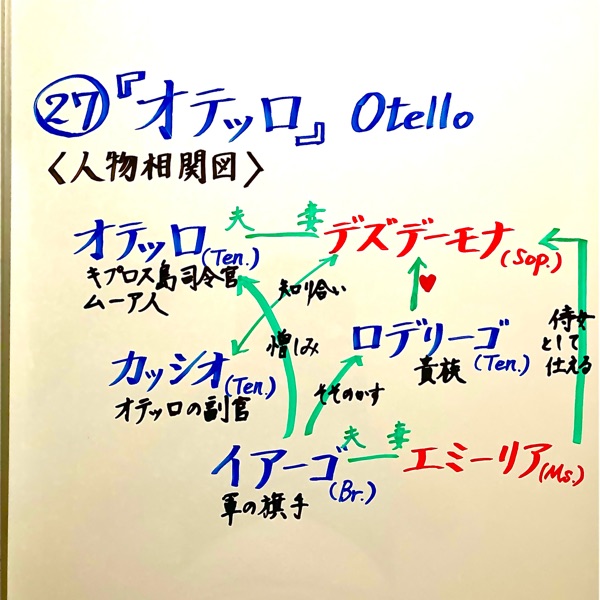 ㉗『オテッロ』 Otello
〈人物相関図〉
オテッロ(Ten.) 夫 妻 デズデーモナ(Sop.)
キプロス島司令官
ムーア人
知り合い
憎しみ
カッシオ(Ten.)
オテッロの副官
ロデリーゴ(Ten.)
貴族
そそのかす
侍女
として
仕える
イアーゴ(Br.) 夫 妻 エミーリア(Ms.)
軍の旗手